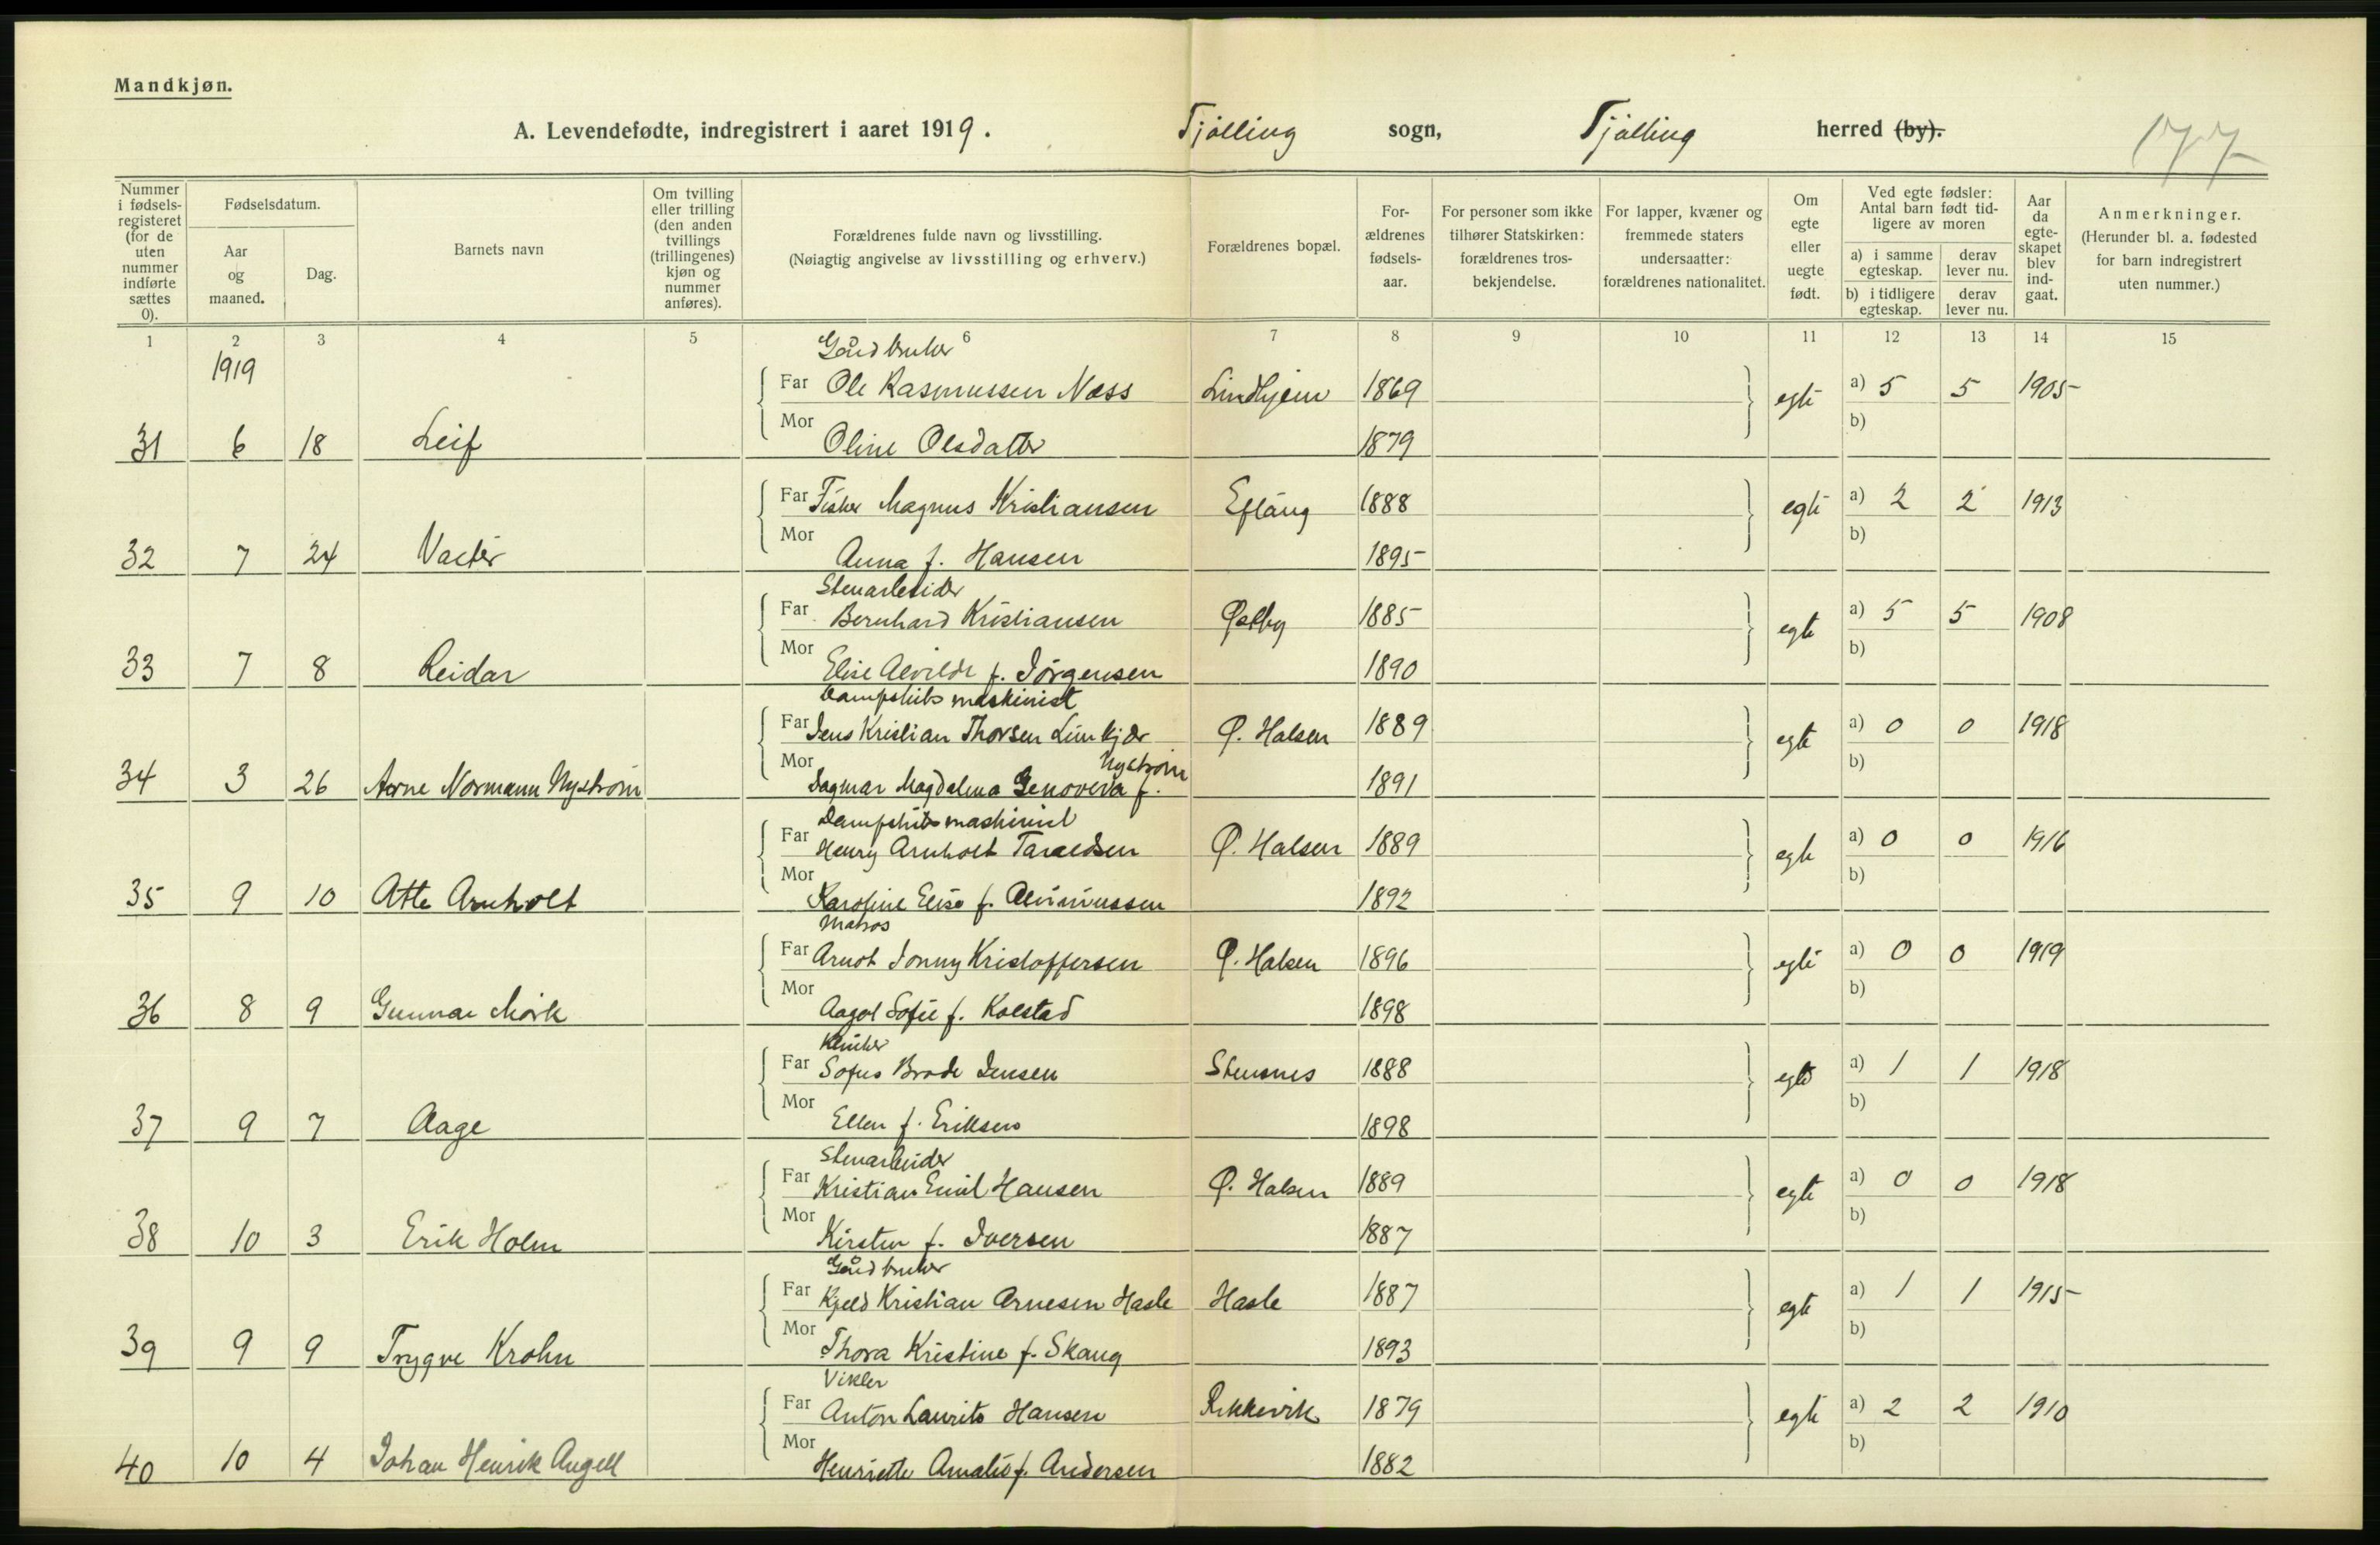 Mandkjøn.
A. Levendefødte, indregistrert i aaret 1919. Tjølling sogn, Tjølling herred (by). 177
Nummer i fødsels-registeret (for de uten nummer indførte sættes 0).
Fødselsdatum.
Aar og maaned.
Dag.
Barnets navn
Om tvilling eller trilling (den anden tvillings (trillingenes) kjøn og nummer anføres).
Forældrenes fulde navn og livsstilling.
(Nøiagtig angivelse av livsstilling og erhverv.)
Forældrenes bopæl.
For-ældrenes fødsels-aar.
For personer som ikke tilhører Statskirken: forældrenes tros-bekjendelse.
For lapper, kvæner og fremmede staters undersaatter: forældrenes nationalitet.
Om egte eller uegte født.
Ved egte fødsler: Antal barn født tid-ligere av moren
a) i samme egteskap. derav lever nu.
b) i tidligere egteskap. derav lever nu.
Aar da egte-skapet blev ind-gaat.
Anmerkninger.
(Herunder bl. a. fødested for barn indregistrert uten nummer.)
1 2 3 4 5 6 7 8 9 10 11 12 13 14 15
1919
Gårdbruker
Far Ole Rasmussen Næss Lindhjem 1869 egte a) 5 5 1905
31 6 18 Leif Mor Oline Olsdatter 1879 b)
Far Fisker Magnus Kristiansen Eftang 1888 egte a) 2 2 1913
32 7 24 Valter Mor Anna f. Hansen 1895 b)
Stenarbeider
Far Bernhard Kristiansen Østby 1885 egte a) 5 5 1908
33 7 8 Reidar Mor Elise Alvilde f. Jørgensen 1890 b)
Dampskibsmaskinist
Far Jens Kristian Thorsen Lunkjær Ø. Halsen 1889 egte a) 0 0 1918
Nystrøm
34 3 26 Arne Normann Nystrøm Mor Dagmar Magdalena Genoveva f. 1891 b)
Dampskibsmaskinist
Far Henry Arnholt Taraldsen Ø. Halsen 1889 egte a) 0 0 1916
35 9 10 Atte Arnholt Mor Karoline Elise f. 1892 b)
Matros
Far Arnot Jonny Kristoffersen Ø. Halsen 1896 egte a) 0 0 1919
36 8 9 Gunnar Mørk Mor Aagot Sofie f. Kolstad 1898 b)
Klinker
Far Sofus Brode Jensen Stensnes 1888 egte a) 1 1 1918
37 9 7 Aage Mor Ellen f. Eriksen 1898 b)
Stenarbeider
Far Kristian Emil Hansen Ø. Halsen 1889 egte a) 0 0 1918
38 10 3 Erik Holm Mor Kirsten f. Iversen 1887 b)
Gårdbruker
Far Kjeld Kristian Arnesen Hasle Hasle 1887 egte a) 1 1 1915
39 9 9 Trygve Krohn Mor Thora Kristine f. Skaug 1893 b)
Vikler
Far Anton Laurits Hansen Rekkevik 1879 egte a) 2 2 1910
40 10 4 Johan Henrik Angell Mor Henriette Amalie f. Andersen 1882 b)